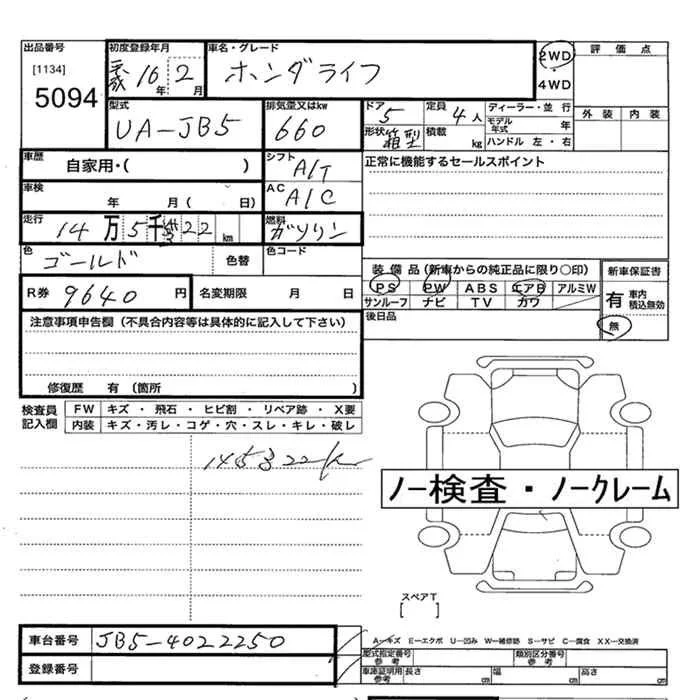 出品番号 初度登録年月 車名・グレード 2WD 評価点
[1134] 16年 2月 ホンダライフ
5094 4WD
型式 排気量又はkw ドア 定員 ディーラー・並行 外装 内装
UA-JB5 660 5 4人 モデル年式 年
形状 箱型 積載 kg ハンドル 左・右
車歴 自家用・( ) シフト A/T 正常に機能するセールスポイント
車検 年 月( 日) AC A/C
走行 14万5千322km 燃料 ガソリン
色 ゴールド 色替 色コード
装備品(新車からの純正品に限り○印) 新車保証書
R券 9640円 名変期限 月 日 PS PW ABS エアB アルミW 有 車内積込無効
サンルーフ ナビ TV カワ
注意事項申告欄(不具合内容等は具体的に記入して下さい) 後日品 無
修復歴 有(箇所 )
検査員記入欄 FW キズ・飛石・ヒビ割・リペア跡・X要
内装 キズ・汚レ・コゲ・穴・スレ・キレ・破レ
145322km
ノー検査・ノークレーム
スペアT
[ ]
車台番号 JB5-4022250 A―キズ E―エクボ U―凹み W―補修跡 S―サビ C―腐食 XX―交換済
登録番号 型式指定番号 参考 類別区分番号 参考
車庫証明用参考 長さ cm 幅 cm 高さ cm